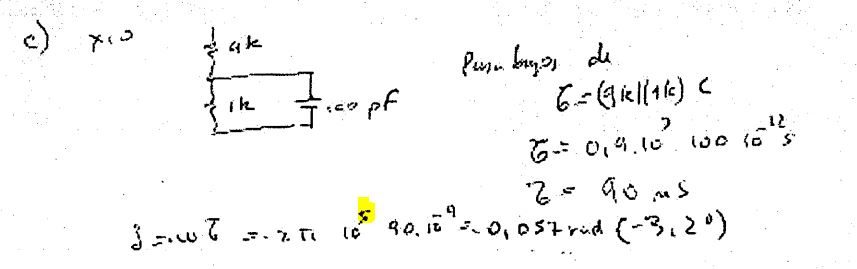 c) x=0
9k
1k
100 pF
de
τ = (9k||1k) C
τ = 0,9.10³ 100 10⁻¹² s
τ = 90 ns
= ω τ = 2π 10⁵ 90.10⁻⁹ = 0,057 rad (-3,2°)